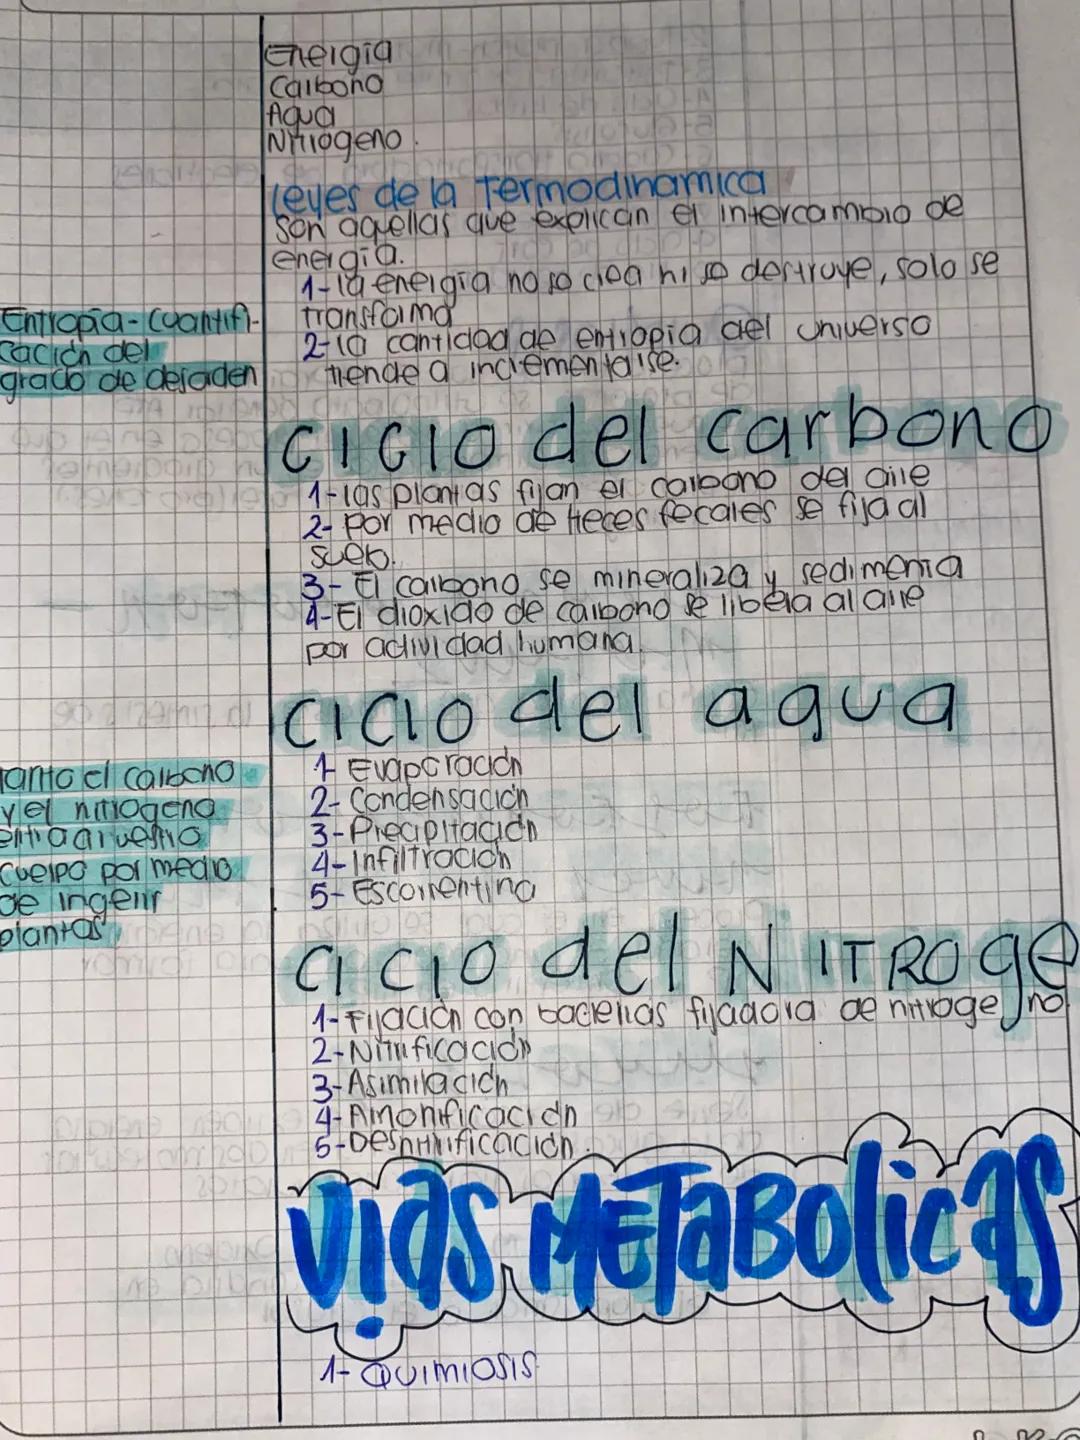 Energia
Carbono
Agua
Nitrogeno.
Leyes de la Termodinamica
Son aquellas que explican el intercambio de
energía.
1- la energía no se crea ni se destruye, solo se
transforma
2- la cantidad de entropia del universo
tiende a incrementarse.
Entropia - Cuantifi-
cación del
grado de desorden
ciclo del carbono
1- las plantas fijan el carbono del aire
2- por medio de heces fecales se fija al
suelo.
3- El carbono se mineraliza y sedimenta
4- El dioxido de carbono se libera al aire
por actividad humana.
ciclo del agua
1- Evaporación
2- Condensación
3- Precipitación
4- Infiltración
5- Escorrentina
tanto el carbono
y el nitrogeno
entra a nuestro
cuerpo por medio
de ingerir
plantas
ciclo del NITROge
no
1- Fijación con bacterias fijadora de nitrogeno
2- Nitrificación
3- Asimilación
4- Amonificación
5- Desnitrificación.
Vias METaBOlicas
1- Quimiosis